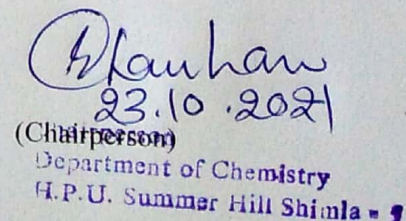 23.10.2021
(Chairperson)
Department of Chemistry
H.P.U. Summer Hill Shimla -